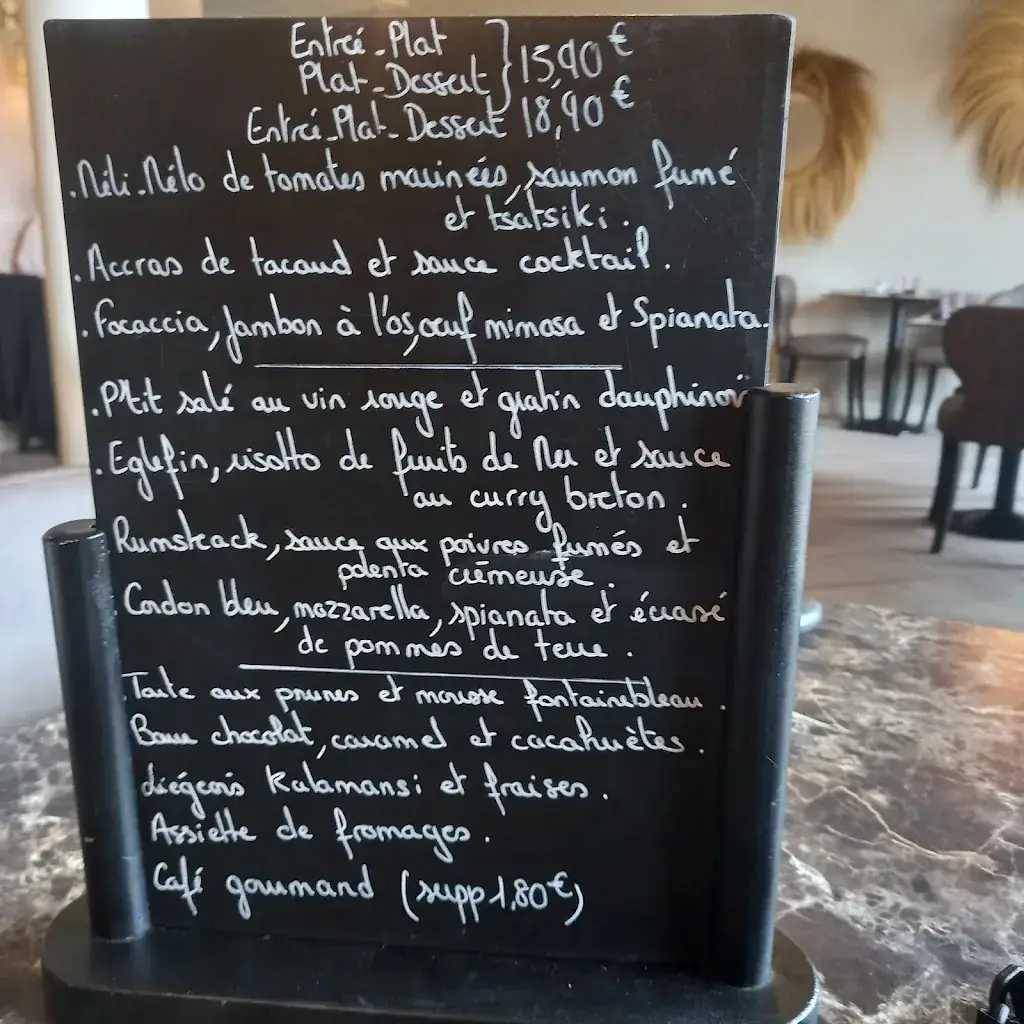 Entrée-Plat
Plat-Dessert } 15,90 €
Entrée-Plat-Dessert 18,90 €
. Méli-Mélo de tomates marinées, saumon fumé
et tsatsiki.
. Accras de tacaud et sauce cocktail.
. Focaccia, jambon à l'os, œuf mimosa et Spianata.
. P'tit salé au vin rouge et gratin dauphinois
. Eglefin, risotto de fruits de Mer et sauce
au curry breton.
Rumsteack, sauce aux poivres fumés et
polenta crémeuse.
Cordon bleu, mozzarella, spianata et écrasé
de pommes de terre.
Tarte aux prunes et mousse fontainebleau.
Barre chocolat, caramel et cacahuètes.
Liégeois Kalamansi et fraises.
Assiette de fromages.
Café gourmand (supp 1,80€)